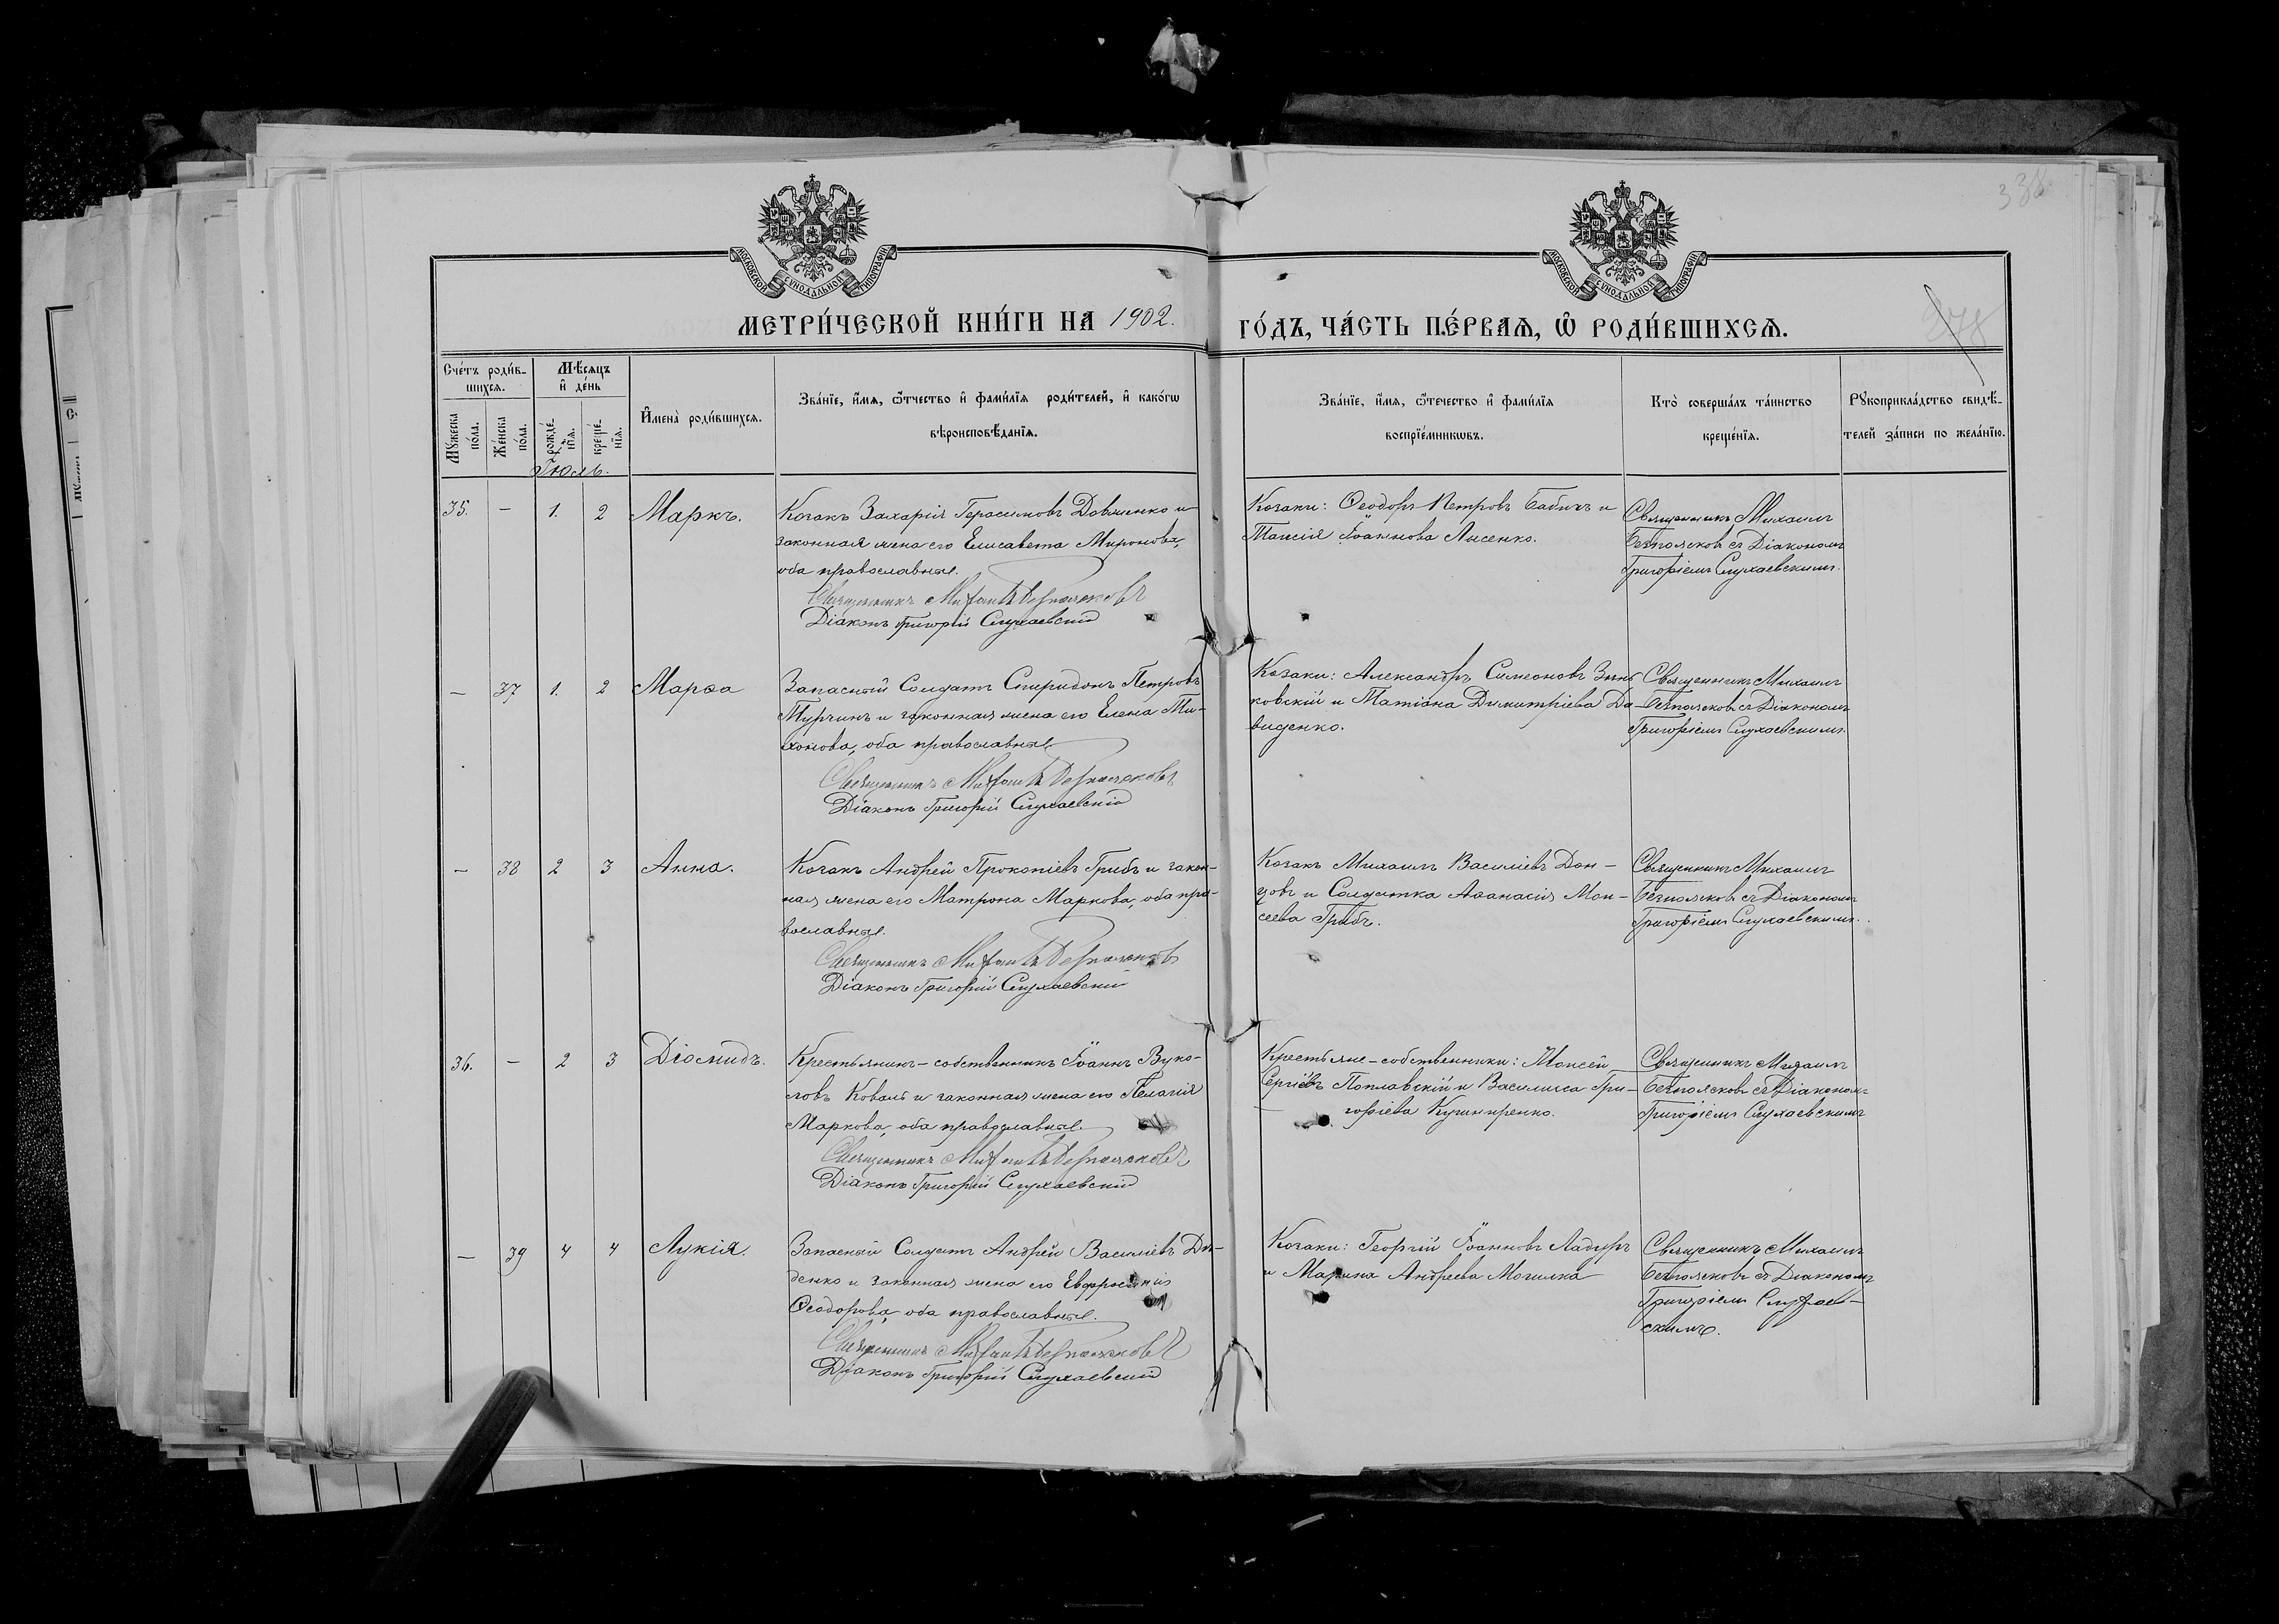 338
МОСКОВСКОЙ СѴНОДАЛЬНОЙ ТИПОГРАФІИ
МОСКОВСКОЙ СѴНОДАЛЬНОЙ ТИПОГРАФІИ
МЕТРИ́ЧЕСКОЙ КНИ́ГИ НА 1902. ГО́ДЪ, ЧА́СТЬ ПЕ́РВАѦ, Ѡ РОДИ́ВШИХСѦ.
278
Сче́тъ роди́в-
шихсѧ.
Мѣ́сѧцъ
и҆ де́нь
Мꙋ́жеска
по́ла.
Же́нска
по́ла.
рожде́-
нїѧ.
креще́-
нїѧ.
И҆мена̀ роди́вшихсѧ.
Зва́нїе, и҆́мѧ, ѻ҆́тчество и҆ фами́лїѧ роди́телей, и҆ како́гѡ
вѣроисповѣ́данїѧ.
Зва́нїе, и҆́мѧ, ѻ҆те́чество и҆ фами́лїѧ
воспрїе́мникѡвъ.
Кто̀ соверша́лъ та́инство
креще́нїѧ.
Рꙋкоприкла́дство свидѣ́-
телей за́писи по жела́нїю.
Іюль.
35. — 1. 2 Маркъ.
Козакъ Захарія Герасимовъ Довженко и
законная жена его Елисавета Миронова,
оба православные.
Священникъ Михаилъ Безпоясковъ
Діаконъ Григорій Слухаевскій
Козаки: Ѳеодоръ Петровъ Бабичъ и
Таисія Іоаннова Лисенко.
Священникъ Михаилъ
Безпоясковъ съ Діакономъ
Григоріемъ Слухаевскимъ.
— 37 1. 2 Марѳа
Запасный Солдатъ Спиридонъ Петровъ
Турчинъ и законная жена его Елена Ти-
хонова, оба православные.
Священникъ Михаилъ Безпоясковъ
Діаконъ Григорій Слухаевскій
Козаки: Александръ Симеоновъ Зинь
ковскій и Татіана Димитріева Да-
виденко.
Священникъ Михаилъ
Безпоясковъ съ Діакономъ
Григоріемъ Слухаевскимъ.
— 38 2 3 Анна.
Козакъ Андрей Прокопіевъ Грибъ и закон-
ная жена его Матрона Маркова, оба пра-
вославные.
Священникъ Михаилъ Безпоясковъ
Діаконъ Григорій Слухаевскій
Козакъ Михаилъ Василіевъ Дон-
цовъ и Солдатка Аѳанасія Мои-
сеева Грибъ.
Священникъ Михаилъ
Безпоясковъ съ Діакономъ
Григоріемъ Слухаевскимъ.
36. — 2 3 Діомидъ.
Крестьянинъ-собственникъ Іоаннъ Вуко-
ловъ Коваль и законная жена его Пелагія
Маркова, оба православные.
Священникъ Михаилъ Безпоясковъ
Діаконъ Григорій Слухаевскій
Крестьяне-собственники: Моисей
Сергіевъ Поплавскій и Василиса Гри-
горіева Кушниренко.
Священникъ Михаилъ
Безпоясковъ съ Діакономъ
Григоріемъ Слухаевскимъ
— 39 4 4 Лукія.
Запасный Солдатъ Андрей Василіевъ Ди-
денко и законная жена его Евфросинія
Ѳеодорова, оба православные.
Священникъ Михаилъ Безпоясковъ
Діаконъ Григорій Слухаевскій
Козаки: Георгій Іоанновъ Ладуръ
и Марина Андреева Могилка
Священникъ Михаилъ
Безпоясковъ съ Діакономъ
Григоріемъ Слухаев-
скимъ.